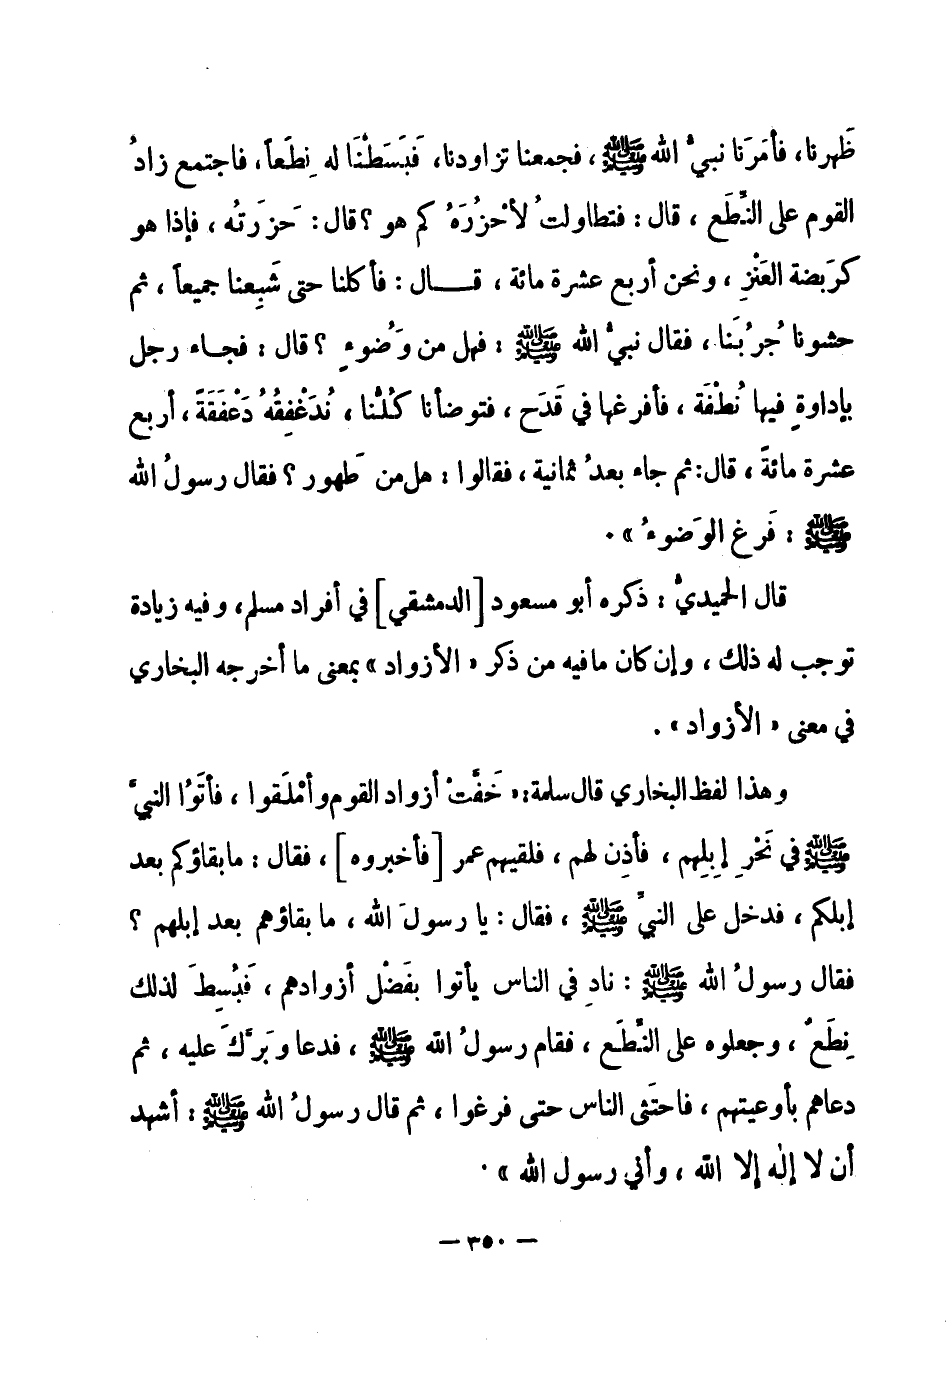 ظَهرنا، فأمَرَنا نبيُّ الله ﷺ ، فجمعنا تزاودنا، فَبَسَطْنَا له نِطَعاً، فاجتمع زادُ
القوم على النِّطَع ، قال : فتطاولتُ لأَحْزُرَهُ كم هو ؟ قال : حَزَرتُه ، فإذا هو
كرَبضة العَنْزِ ، ونحن أربع عشرة مائة ، قـــال : فأكلنا حتى شَبِعنا جميعاً ، ثم
حشونا جُرُبَنا ، فقال نبيُّ الله ﷺ : فهل من وَضُوءٍ ؟ قال : فجاء رجل
بإداوةٍ فيها نُطْفَة ، فأفرغها في قَدَح ، فتوضأنا كُلُّنا ، نُدَغْفِقُهُ دَغْفَقَةً ، أربع
عشرة مائةً ، قال: ثم جاء بعدُ ثمانية ، فقالوا : هل من طَهور ؟ فقال رسولُ الله
ﷺ : فَرغ الوَضوءُ » .
قال الحميديُّ : ذكره أبو مسعود [الدمشقي] في أفراد مسلم، وفيه زيادة
توجب له ذلك ، وإن كان ما فيه من ذكر « الأزواد » بمعنى ما أخرجه البخاري
في معنى « الأزواد » .
وهذا لفظ البخاري قال سلمة: « خَفَّتْ أزواد القوم وأمْلَقوا ، فأتَوُا النبيَّ
ﷺ في نَحْرِ إبِلِهم ، فأذِن لهم ، فلقيهم عمر [فأخبروه] ، فقال : ما بقاؤكم بعد
إبلكم ، فدخل على النبيِّ ﷺ ، فقال : يا رسولَ الله ، ما بقاؤهم بعد إبلهم ؟
فقال رسولُ الله ﷺ : نادِ في الناس يأتوا بفَضْل أزوادهم ، فَبُسِطَ لذلك
نِطَعٌ ، وجعلوه على النِّطَع ، فقام رسولُ الله ﷺ ، فدعا وبَرَّكَ عليه ، ثم
دعاهم بأوعيتهم ، فاحتَثى الناس حتى فرغوا ، ثم قال رسولُ الله ﷺ : أشهد
أن لا إلٰه إلا الله ، وأني رسول الله » .
— ٣٥٠ —